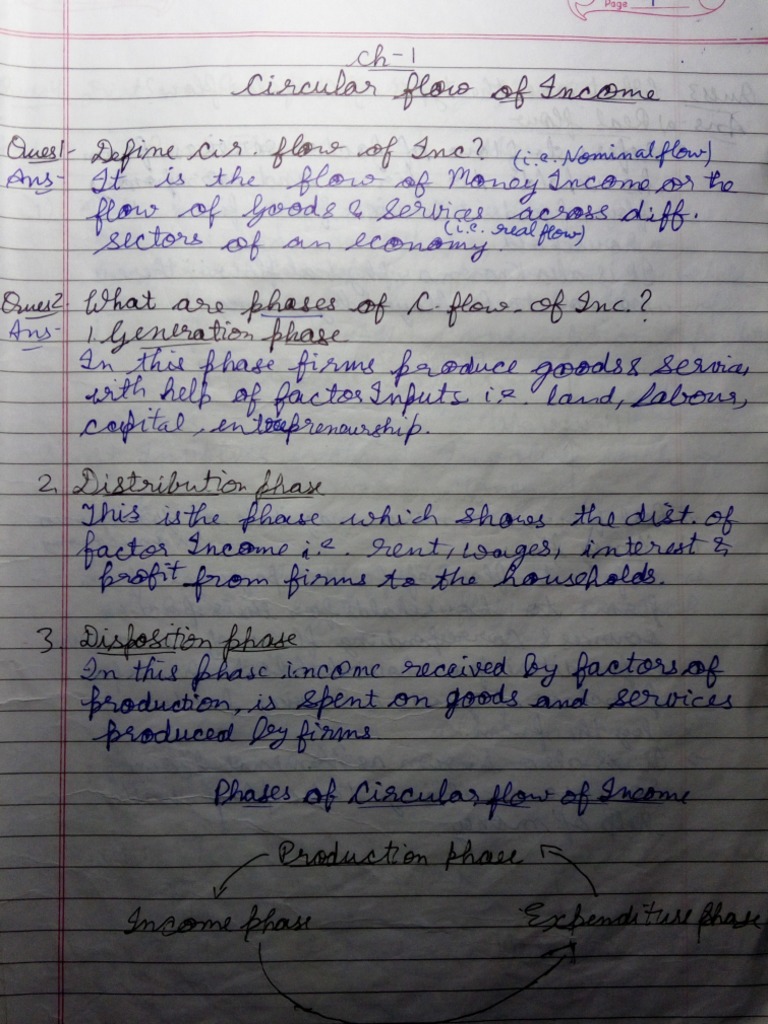 Page 1
Ch-1
Circular flow of Income
Ques1- Define cir. flow of Inc? (i.e. Nominal flow)
Ans- It is the flow of Money Income or the
flow of Goods & Services across diff.
sectors of an economy. (i.e. real flow)
Ques2- What are phases of C. flow. of Inc.?
Ans- 1. Generation phase
In this phase firms produce goods & services
with help of factor Inputs i.e. land, labour,
capital, entrepreneurship.
2. Distribution phase
This is the phase which shows the dist. of
factor Income i.e. rent, wages, interest &
profit from firms to the households.
3. Disposition phase
In this phase income received by factors of
production, is spent on goods and services
produced by firms
Phases of Circular flow of Income
Production phase
Income phase Expenditure phase